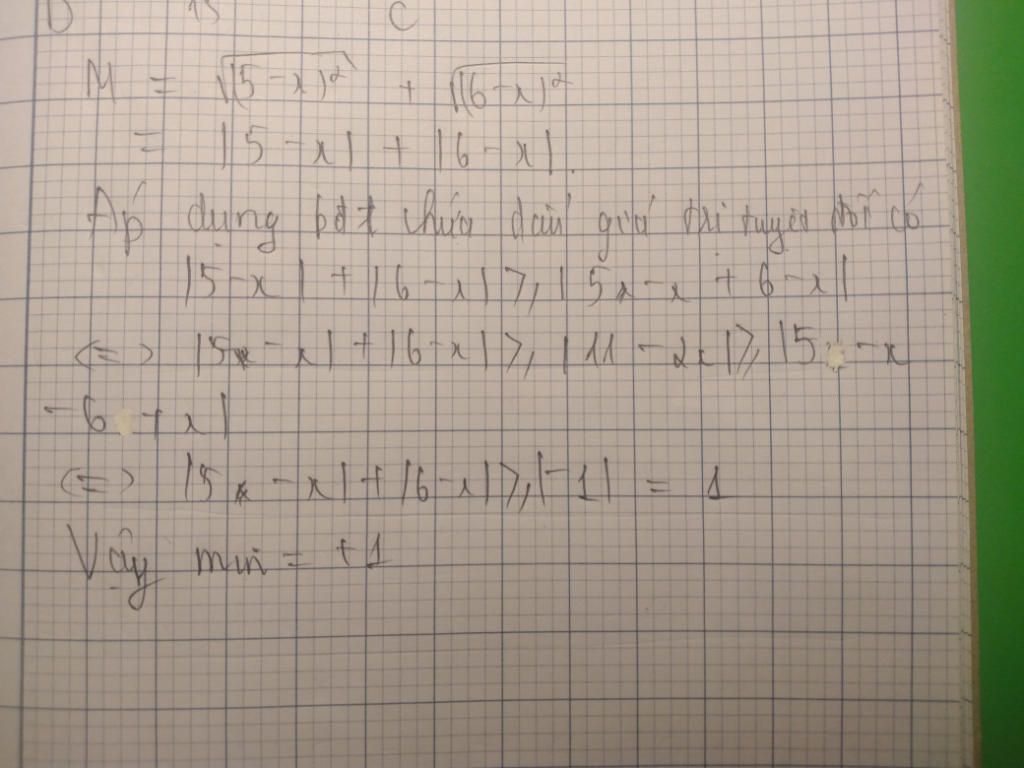 M = √(5-x)² + √(6-x)²
= |5-x| + |6-x|.
Áp dụng bđt chứa dấu giá trị tuyệt đối có
|5-x| + |6-x| ≥, |5x-x + 6-x|
<=> |5x-x| + |6-x| ≥, |11-2x| ≥, |5 -x
-6 +x|
<=> |5x-x| + |6-x| ≥, |-1| = 1
Vậy min = +1